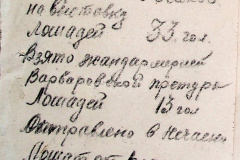 на выставку
Лошадей 33 гол.
Взято жандармерией
Варваровской претуры
Лошадей 13 гол
Отправлено в Нечаено
Лошадей